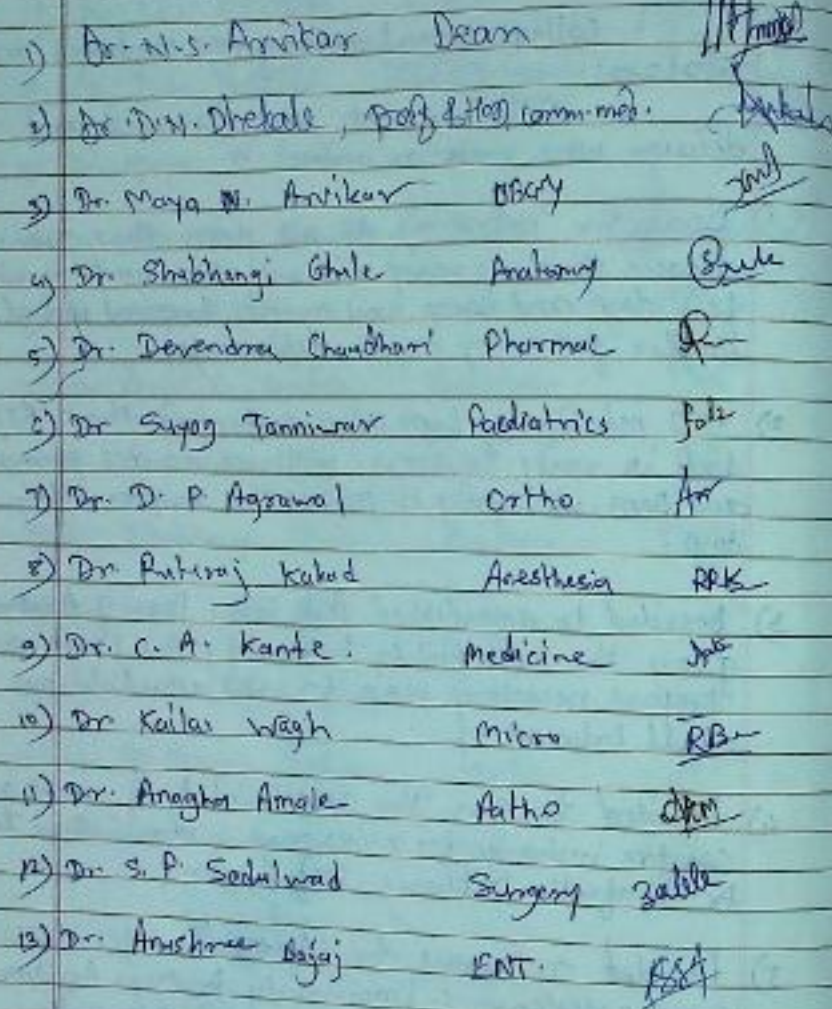 1) Dr. N.S. Arvikar Dean
2) Dr. D.N. Dhekale, prof & HOD comm. med.
3) Dr. Maya N. Arvikar OBGY
4) Dr. Shubhangi Ghule Anatomy
5) Dr. Devendra Chaudhari Pharmac
6) Dr Suyog Tanniwar Paediatrics
7) Dr. D. P. Agrawal Ortho
8) Dr. Ruturaj Kakad Anesthesia RRK
9) Dr. C. A. Kante. Medicine
10) Dr Kailas Wagh Micro RB
11) Dr. Anagha Amale Patho
12) Dr S. P. Sedulwad Surgery
13) Dr. Anushree Bajaj ENT.